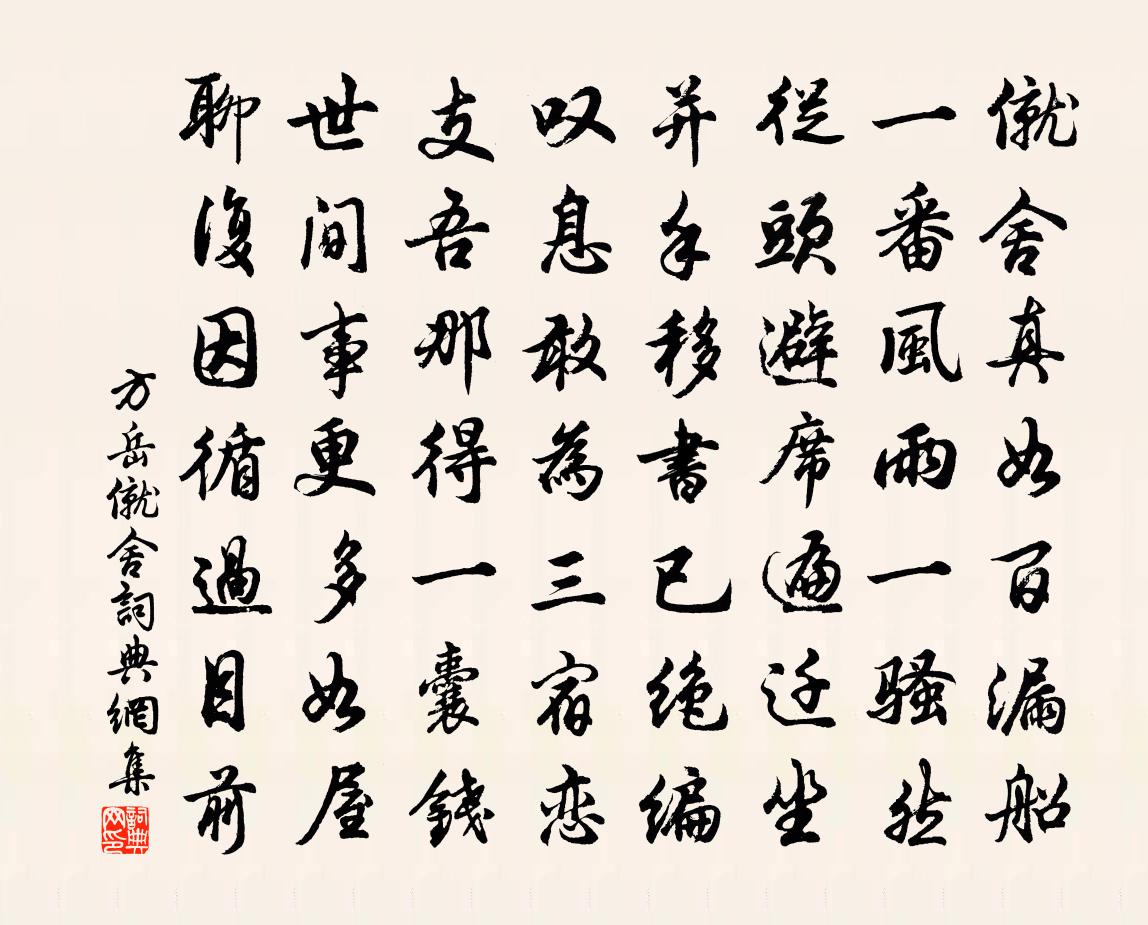 僦舍真如百漏船
一番風雨一騷然
從頭避席遍迁坐
并手移書已绝编
叹息敢為三宿恋
支吾那得一囊錢
世间事更多如屋
聊復因循過目前
方岳僦舍詞典網集
詞典网印